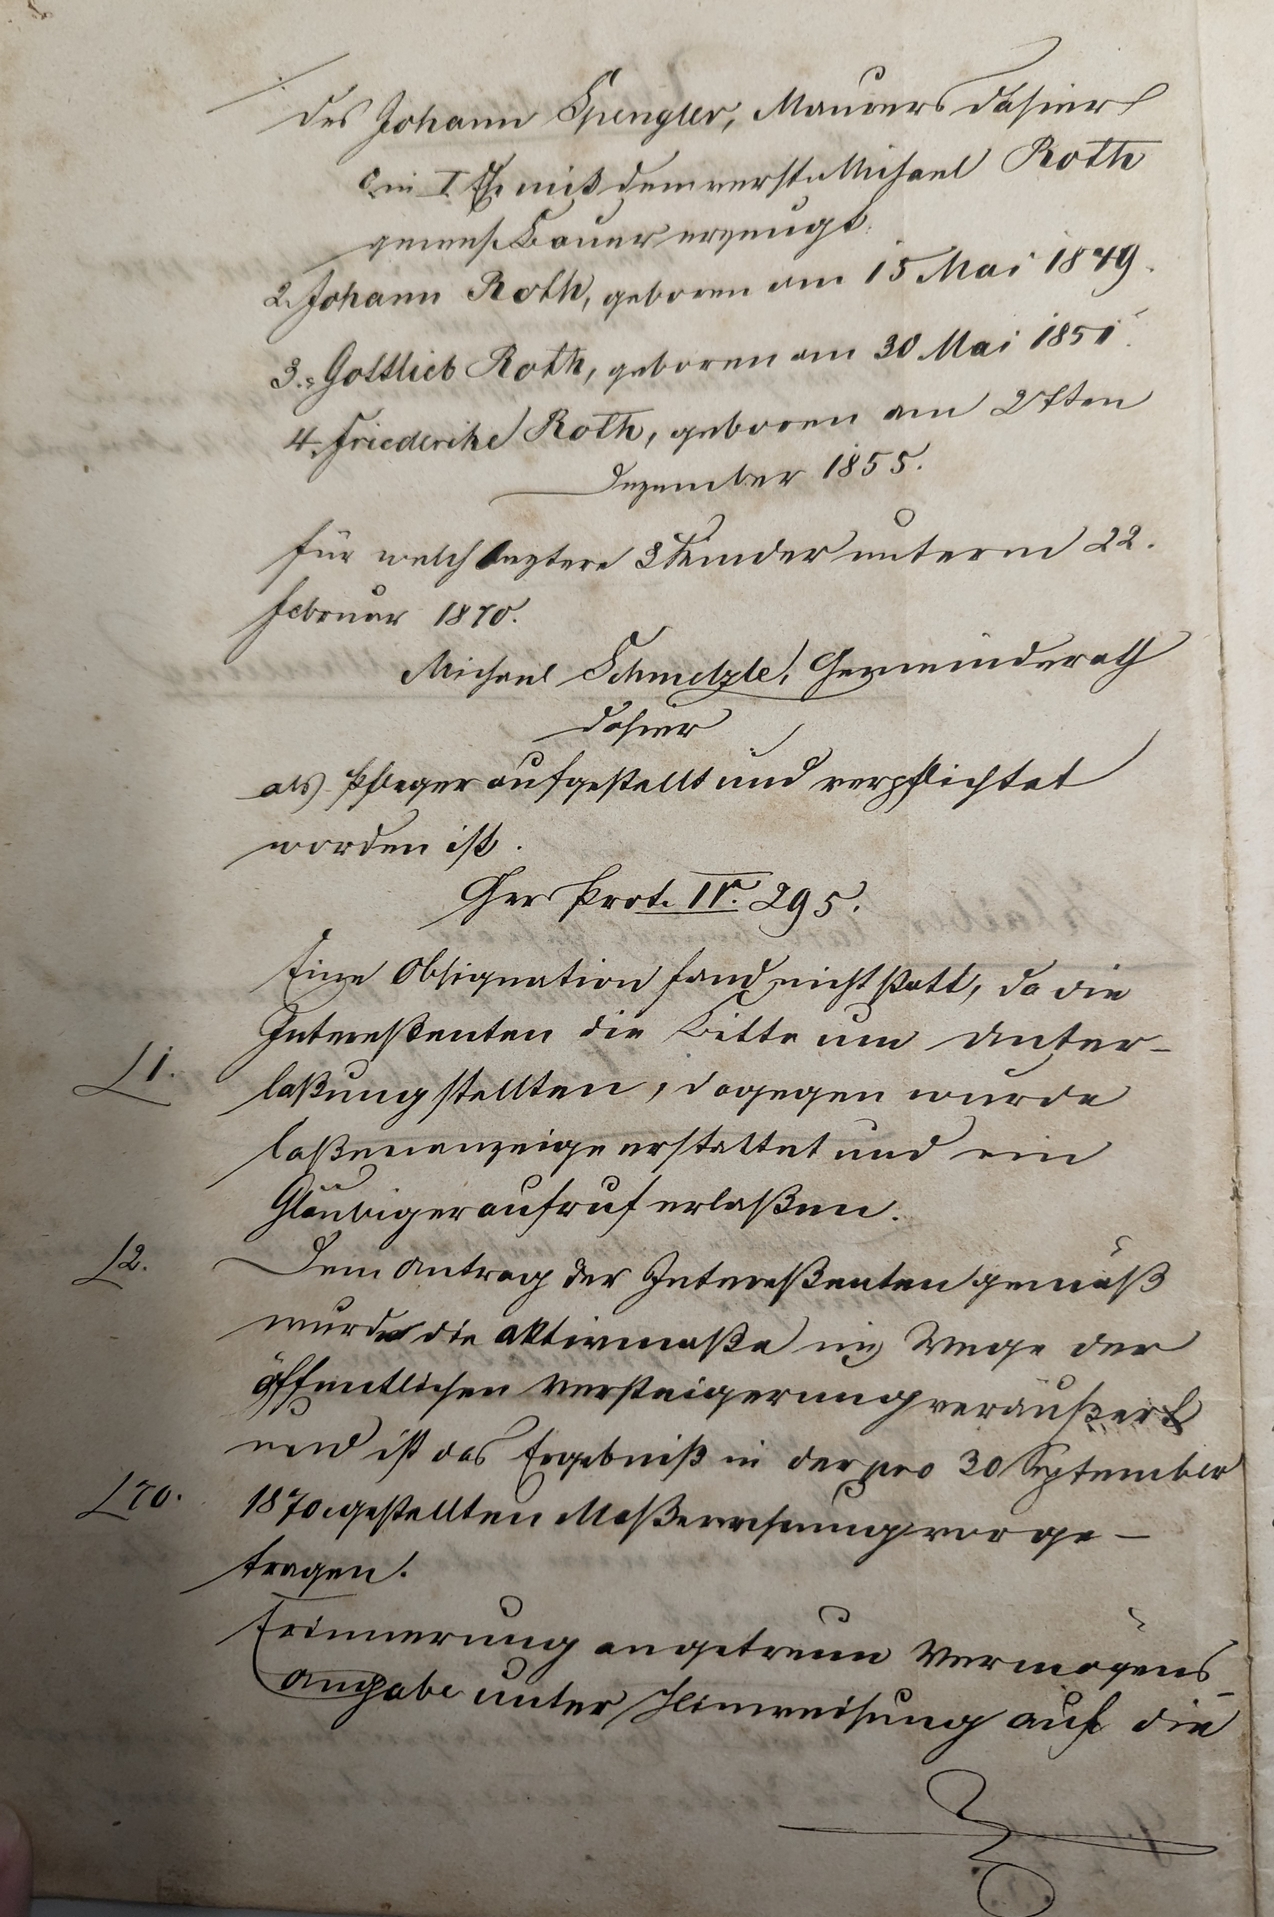 des Johann Spengler, Maurers dahier
c, in I Ehe mit dem verst. Michael Roth
gewes. Bauer erzeugt.
2. Johann Roth, geboren am 15 Mai 1849.
3. Gottlieb Roth, geboren am 30 Mai 1851.
4. Friederike Roth, geboren am 2ften
Dezember 1855.
für welch leztere 3 Kinder unterm 22.
Februar 1870.
Michael Schmelzle, Gemeinderath
dahier
als Pfleger aufgestellt und verpflichtet
worden ist.
Ger Prot. IV. 295.
Eine Obsignation fand nicht statt, da die
Interessenten die Bitte um Unter-
L 1. laßung stellten, dagegen wurde
anzeige erstattet und ein
Gläubigeraufruf erlaßen.
L 2. Dem Antrag der Intereßenten gemäß
wurde die Aktivmaße im Wege der
öffentlichen Versteigerung veräußert
und ist das Ergebniß in der pro 30 September
L 70. 1870 gestellten Maßerechnung vorge-
tragen.
Erinnerung an getreue Vermögens-
angabe unter Hinweisung auf die